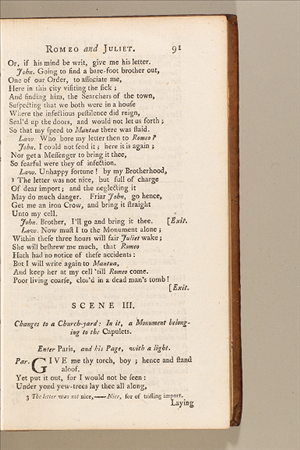 ROMEO and JULIET. 91
Or, if his mind be writ, give me his letter.
John. Going to find a bare-foot brother out,
One of our Order, to associate me,
Here in this city visiting the sick;
And finding him, the Searchers of the town,
Suspecting that we both were in a house
Where the infectious pestilence did reign,
Seal'd up the doors, and would not let us forth;
So that my speed to Mantua there was staid.
Law. Who bore my letter then to Romeo?
John. I could not send it; here it is again;
Nor get a Messenger to bring it thee,
So fearful were they of infection.
Law. Unhappy fortune! by my Brotherhood,
3 The letter was not nice, but full of charge
Of dear import; and the neglecting it
May do much danger. Friar John, go hence,
Get me an iron Crow, and bring it straight
Unto my cell.
John. Brother, I'll go and bring it thee. [Exit.
Law. Now must I to the Monument alone;
Within these three hours will fair Juliet wake;
She will beshrew me much, that Romeo
Hath had no notice of these accidents:
But I will write again to Mantua,
And keep her at my cell 'till Romeo come.
Poor living coarse, clos'd in a dead man's tomb!
[Exit.
SCENE III.
Changes to a Church-yard: In it, a Monument belong-
ing to the Capulets.
Enter Paris, and his Page, with a light.
Par. GIVE me thy torch, boy; hence and stand
aloof.
Yet put it out, for I would not be seen:
Under yond yew-trees lay thee all along,
3 The letter was not nice,——Nice, for of trifling import.
Laying